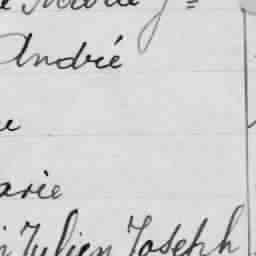 Marie
André
arie
Julien Joseph